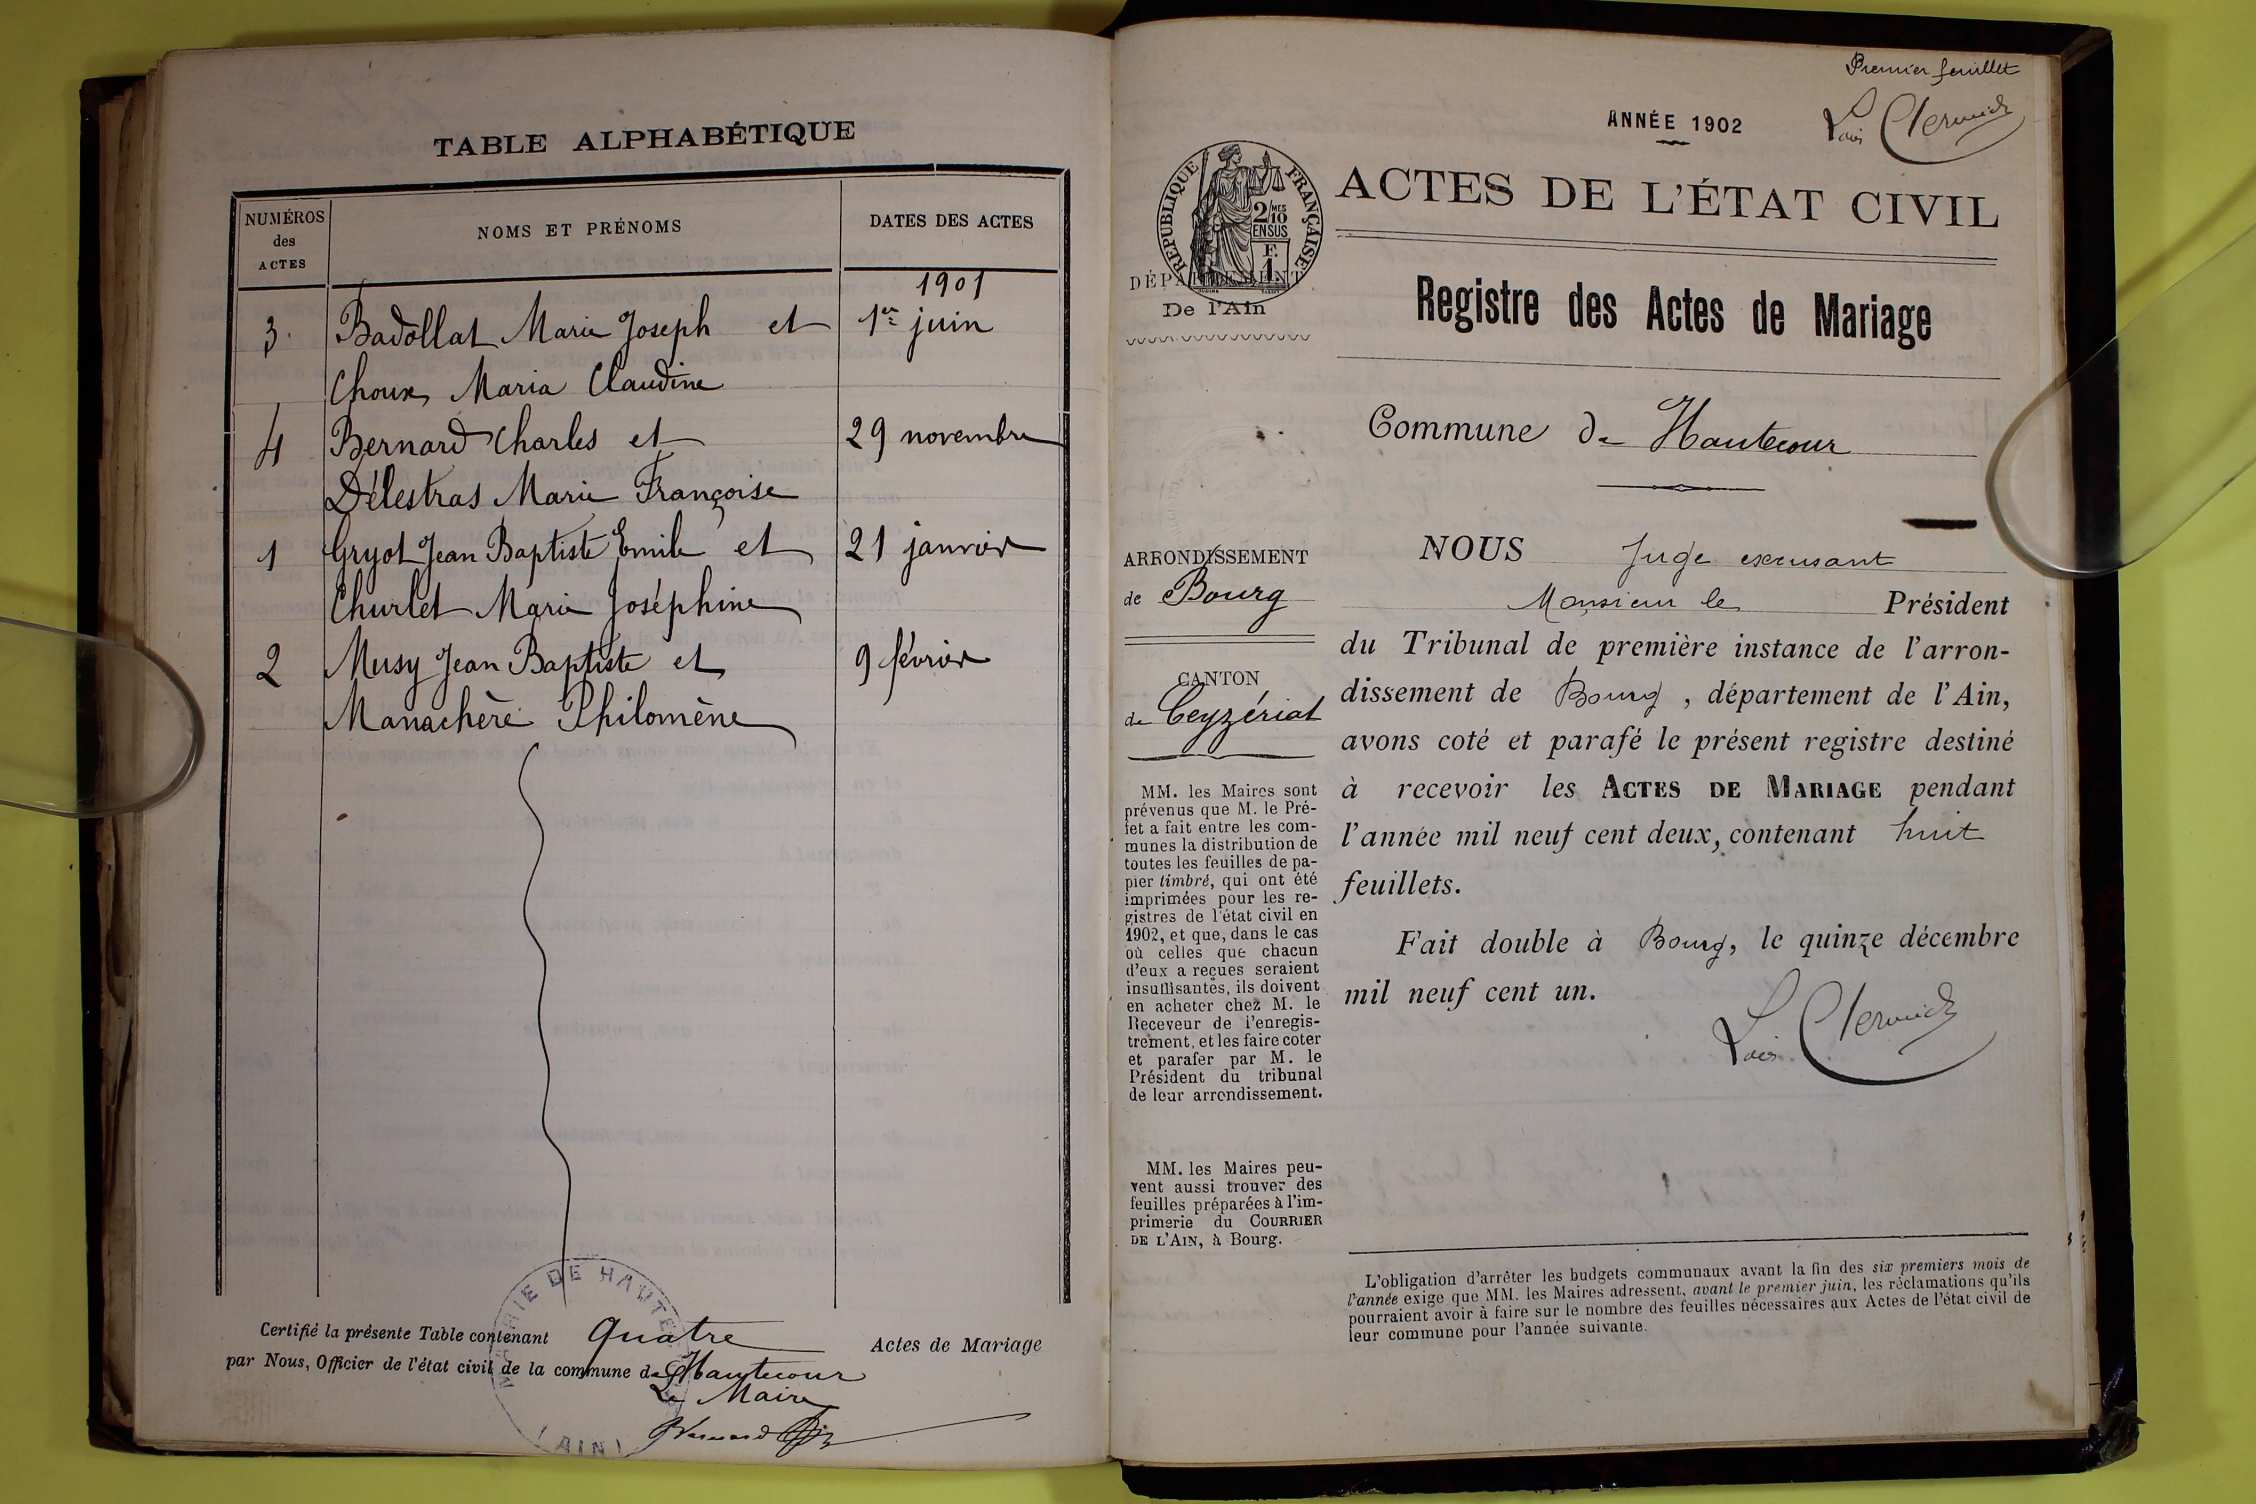 TABLE ALPHABÉTIQUE
NUMÉROS
des
ACTES
NOMS ET PRÉNOMS
DATES DES ACTES
1901
3. Badollat Marie Joseph et 1er juin
Choux Maria Claudine
4 Bernard Charles et 29 novembre
Délestras Marie Françoise
1 Gryot Jean Baptiste Emile et 21 janvier
Churlet Marie Joséphine
2 Musy Jean Baptiste et 9 février
Manachère Philomène
Certifié la présente Table contenant Quatre Actes de Mariage
par Nous, Officier de l'état civil de la commune de Hautecour
Le Maire
Bernard
MAIRIE DE HAUTECOUR
(AIN)
Premier feuillet
Louis
ANNÉE 1902
RÉPUBLIQUE FRANÇAISE
2/10 MES
EN SUS
F.
1
ACTES DE L'ÉTAT CIVIL
DÉPARTEMENT
De l'Ain
Registre des Actes de Mariage
Commune de Hautecour
ARRONDISSEMENT
de Bourg
CANTON
de Ceyzériat
MM. les Maires sont
prévenus que M. le Pré-
fet a fait entre les com-
munes la distribution de
toutes les feuilles de pa-
pier timbré, qui ont été
imprimées pour les re-
gistres de l'état civil en
1902, et que, dans le cas
où celles que chacun
d'eux a reçues seraient
insuffisantes, ils doivent
en acheter chez M. le
Receveur de l'enregis-
trement, et les faire coter
et parafer par M. le
Président du tribunal
de leur arrondissement.
MM. les Maires peu-
vent aussi trouver des
feuilles préparées à l'im-
primerie du COURRIER
DE L'AIN, à Bourg.
NOUS Juge excusant
Monsieur le Président
du Tribunal de première instance de l'arron-
dissement de Bourg, département de l'Ain,
avons coté et parafé le présent registre destiné
à recevoir les ACTES DE MARIAGE pendant
l'année mil neuf cent deux, contenant huit
feuillets.
Fait double à Bourg, le quinze décembre
mil neuf cent un.
Louis
L'obligation d'arrêter les budgets communaux avant la fin des six premiers mois de
l'année exige que MM. les Maires adressent, avant le premier juin, les réclamations qu'ils
pourraient avoir à faire sur le nombre des feuilles nécessaires aux Actes de l'état civil de
leur commune pour l'année suivante.